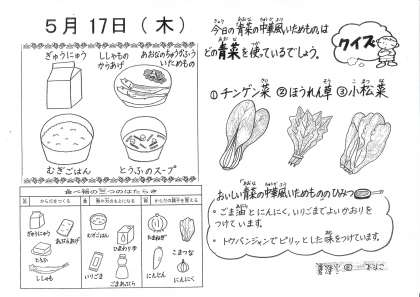 5月17日（木）
ぎゅうにゅう
ししゃもの
からあげ
あおなのちゅうかふう
いためもの
むぎごはん
とうふのスープ
食べ物の三つのはたらき
からだをつくる
熱や力のもとになる
からだの調子を整える
ぎゅうにゅう
あぶらあげ
とうふ
ししゃも
むぎごはん
ひまわり油
いりごま
ごまあぶら
たまねぎ
こまつな
にんじん
にんにく
きょう あおな ちゅうかふう
今日の青菜の中華風いためものは
どの青菜を使っているでしょう。
クイズ
①チンゲン菜 ②ほうれん草 ③小松菜
おいしい青菜の中華風いためもののひみつ
・ごま油とにんにく、いりごまでよいかおりを
つけています。
・トウバンジャンでピリッとした味をつけています。